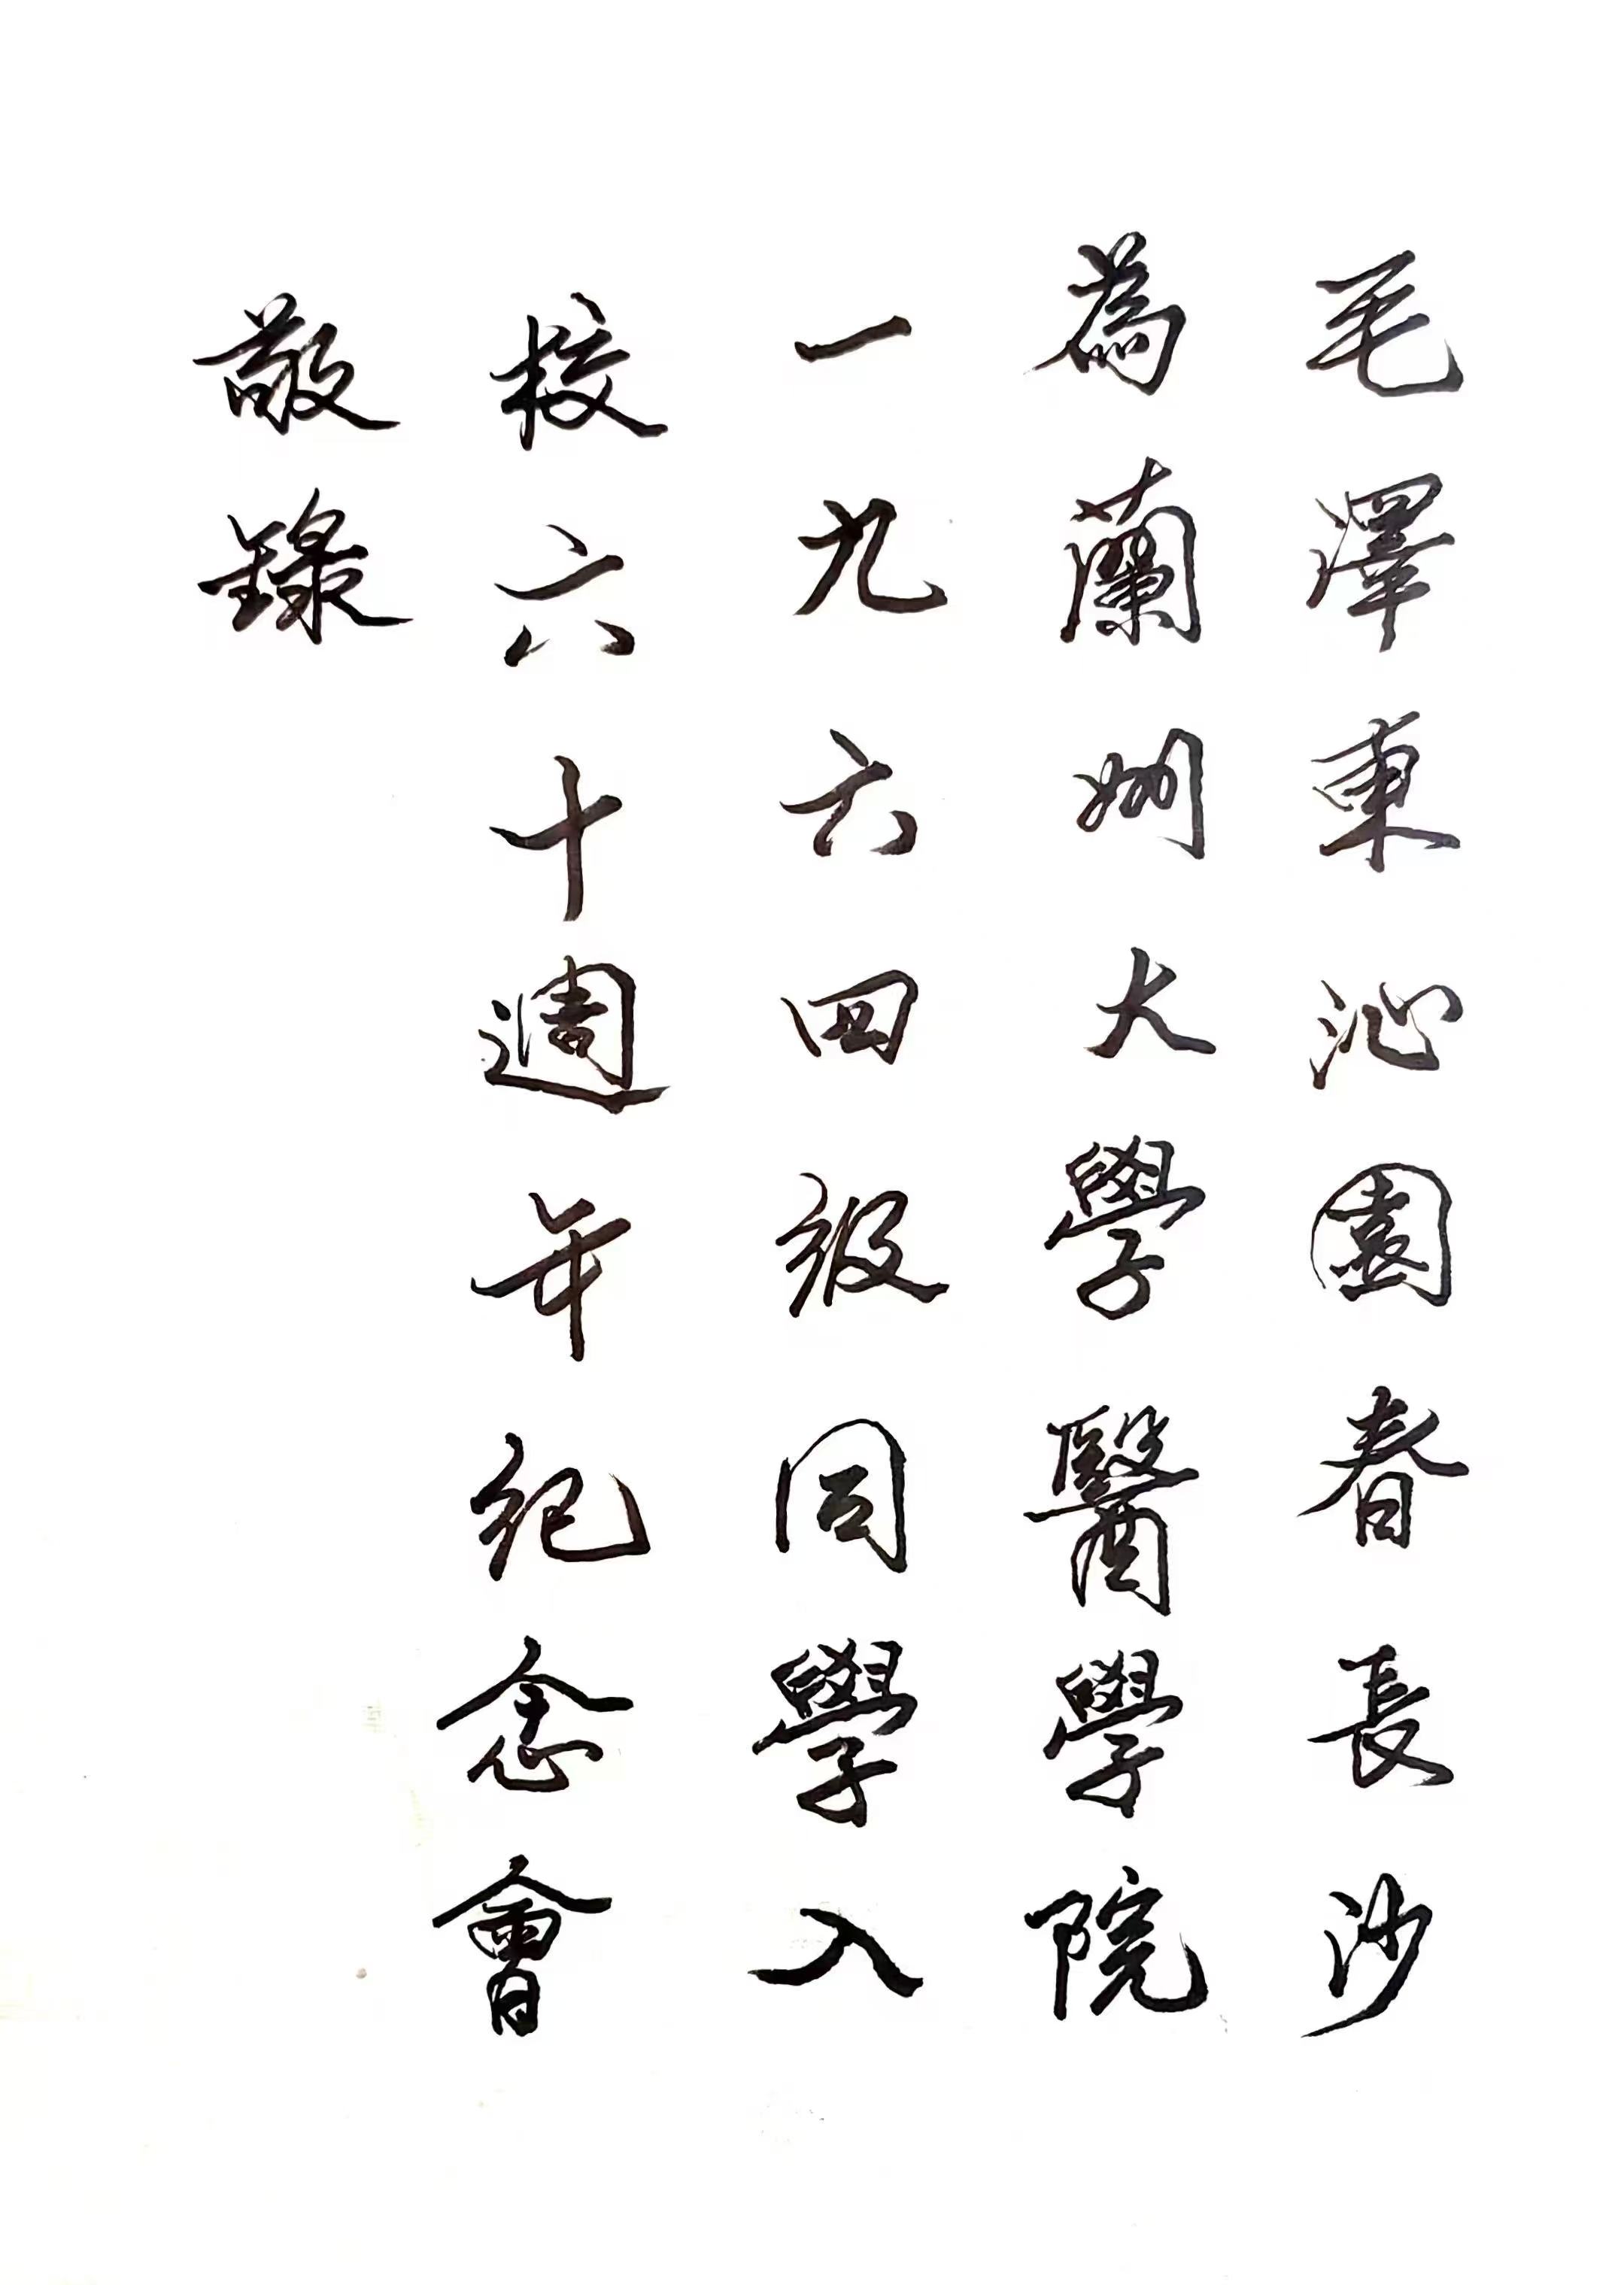 毛澤東沁園春長沙
為蘭州大學醫學院
一九六四級同學入
校六十週年紀念會
敬錄